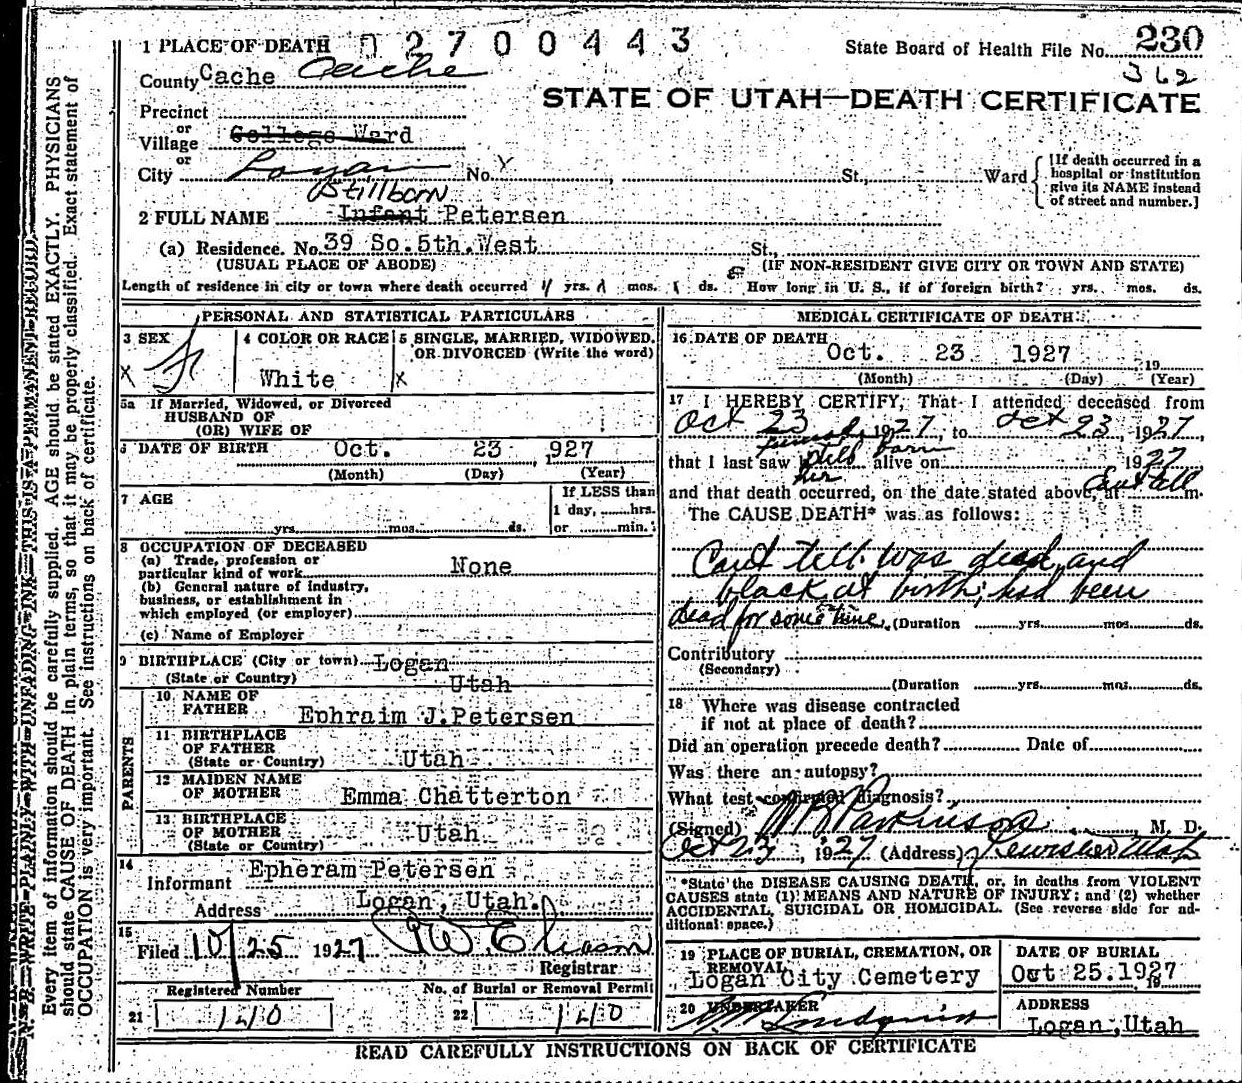 1 PLACE OF DEATH 2700443
State Board of Health File No. 230
County Cache Cache
362
STATE OF UTAH—DEATH CERTIFICATE
Precinct
or
Village College Ward
or
City Logan No. Y St., Ward [If death occurred in a hospital or institution give its NAME instead of street and number.]
Stillborn
2 FULL NAME Infant Petersen
(a) Residence. No. 39 So. 5th. West St.,
(USUAL PLACE OF ABODE) (IF NON-RESIDENT GIVE CITY OR TOWN AND STATE)
Length of residence in city or town where death occurred yrs. mos. ds. How long in U. S., if of foreign birth? yrs. mos. ds.
PERSONAL AND STATISTICAL PARTICULARS
3 SEX 4 COLOR OR RACE 5 SINGLE, MARRIED, WIDOWED, OR DIVORCED (Write the word)
X F White X
5a If Married, Widowed, or Divorced
HUSBAND OF
(OR) WIFE OF
6 DATE OF BIRTH Oct. 23 1927
(Month) (Day) (Year)
7 AGE If LESS than 1 day, hrs.
yrs. mos. ds. or min.
8 OCCUPATION OF DECEASED
(a) Trade, profession or
particular kind of work None
(b) General nature of industry,
business, or establishment in
which employed (or employer)
(c) Name of Employer
9 BIRTHPLACE (City or town) Logan
(State or Country) Utah
PARENTS
10 NAME OF FATHER Ephraim J. Petersen
11 BIRTHPLACE OF FATHER
(State or Country) Utah
12 MAIDEN NAME OF MOTHER Emma Chatterton
13 BIRTHPLACE OF MOTHER
(State or Country) Utah
14 Informant Epheram Petersen
Address Logan, Utah.
15 Filed 10/25 1927
Registrar
Registered Number No. of Burial or Removal Permit
21 140 22 140
MEDICAL CERTIFICATE OF DEATH
16 DATE OF DEATH
Oct. 23 1927 19
(Month) (Day) (Year)
17 I HEREBY CERTIFY, That I attended deceased from
Oct 23, 1927, to Oct 23, 1927,
still born
that I last saw her alive on 1927
and that death occurred, on the date stated above, at Can't tell m.
The CAUSE DEATH* was as follows:
Can't tell. Was dead, and
black at birth, had been
dead for some time. (Duration yrs. mos. ds.
Contributory
(Secondary)
(Duration yrs. mos. ds.
18 Where was disease contracted
if not at place of death?
Did an operation precede death? Date of
Was there an autopsy?
What test confirmed diagnosis?
(Signed) Parkinson M. D.
Oct 23, 1927 (Address) Utah
*State the DISEASE CAUSING DEATH, or, in deaths from VIOLENT
CAUSES state (1) MEANS AND NATURE OF INJURY; and (2) whether
ACCIDENTAL, SUICIDAL OR HOMICIDAL. (See reverse side for additional space.)
19 PLACE OF BURIAL, CREMATION, OR REMOVAL DATE OF BURIAL
Logan City Cemetery Oct 25. 1927 19
20 UNDERTAKER ADDRESS
Lindquist Logan, Utah
READ CAREFULLY INSTRUCTIONS ON BACK OF CERTIFICATE
N. B.—WRITE PLAINLY WITH UNFADING INK—THIS IS A PERMANENT RECORD.
Every item of information should be carefully supplied. AGE should be stated EXACTLY. PHYSICIANS
should state CAUSE OF DEATH in plain terms, so that it may be properly classified. Exact statement of
OCCUPATION is very important. See instructions on back of certificate.